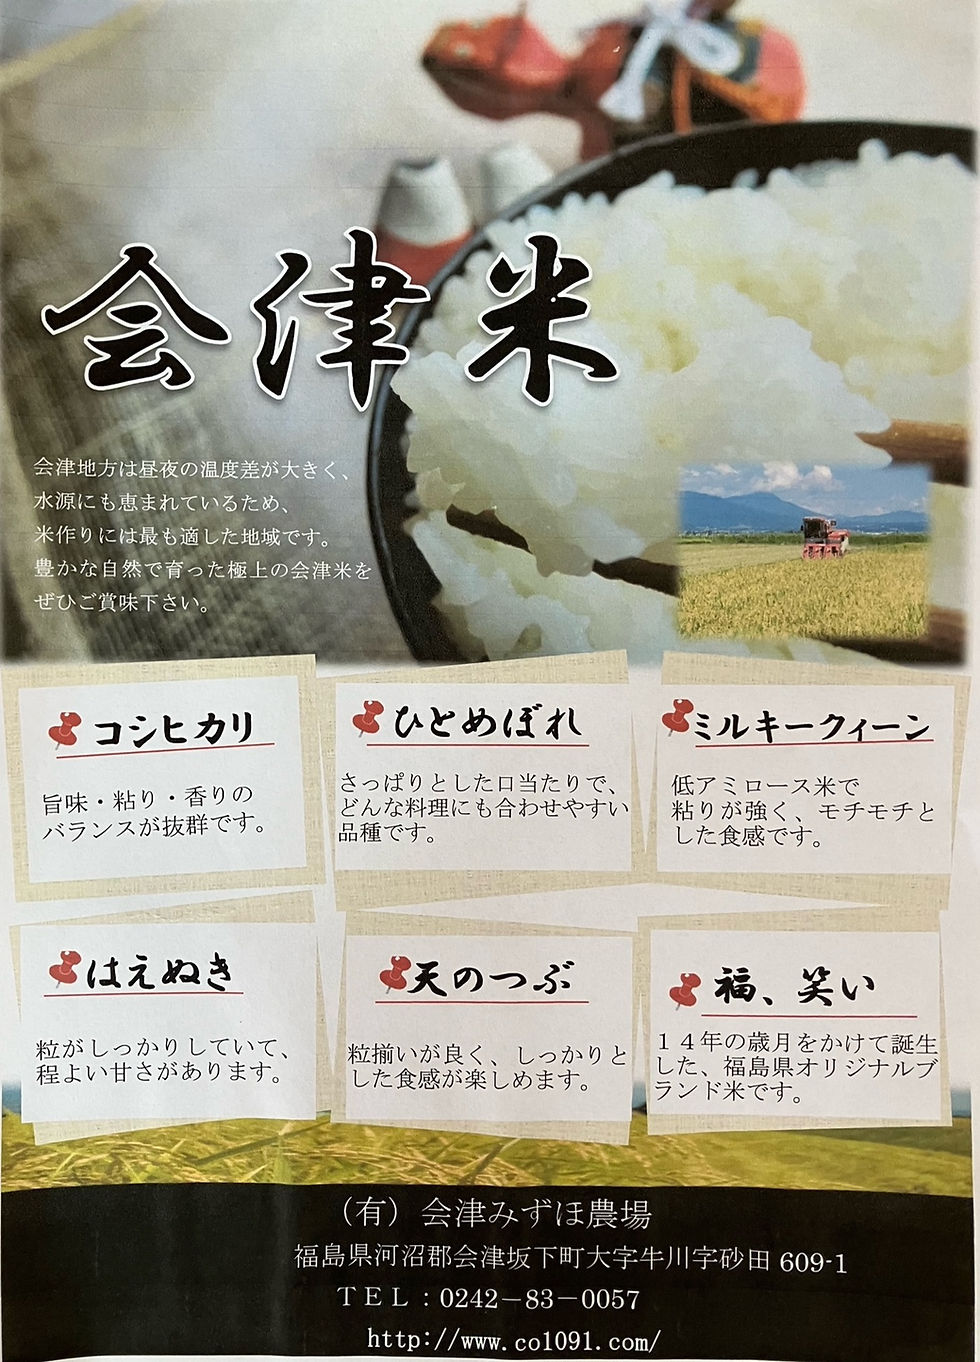 会津米
会津地方は昼夜の温度差が大きく、
水源にも恵まれているため、
米作りには最も適した地域です。
豊かな自然で育った極上の会津米を
ぜひご賞味下さい。
コシヒカリ
旨味・粘り・香りの
バランスが抜群です。
ひとめぼれ
さっぱりとした口当たりで、
どんな料理にも合わせやすい
品種です。
ミルキークィーン
低アミロース米で
粘りが強く、モチモチと
した食感です。
はえぬき
粒がしっかりしていて、
程よい甘さがあります。
天のつぶ
粒揃いが良く、しっかりと
した食感が楽しめます。
福、笑い
１４年の歳月をかけて誕生
した、福島県オリジナルブ
ランド米です。
（有）会津みずほ農場
福島県河沼郡会津坂下町大字牛川字砂田 609-1
ＴＥＬ：0242－83－0057
http://www.co1091.com/